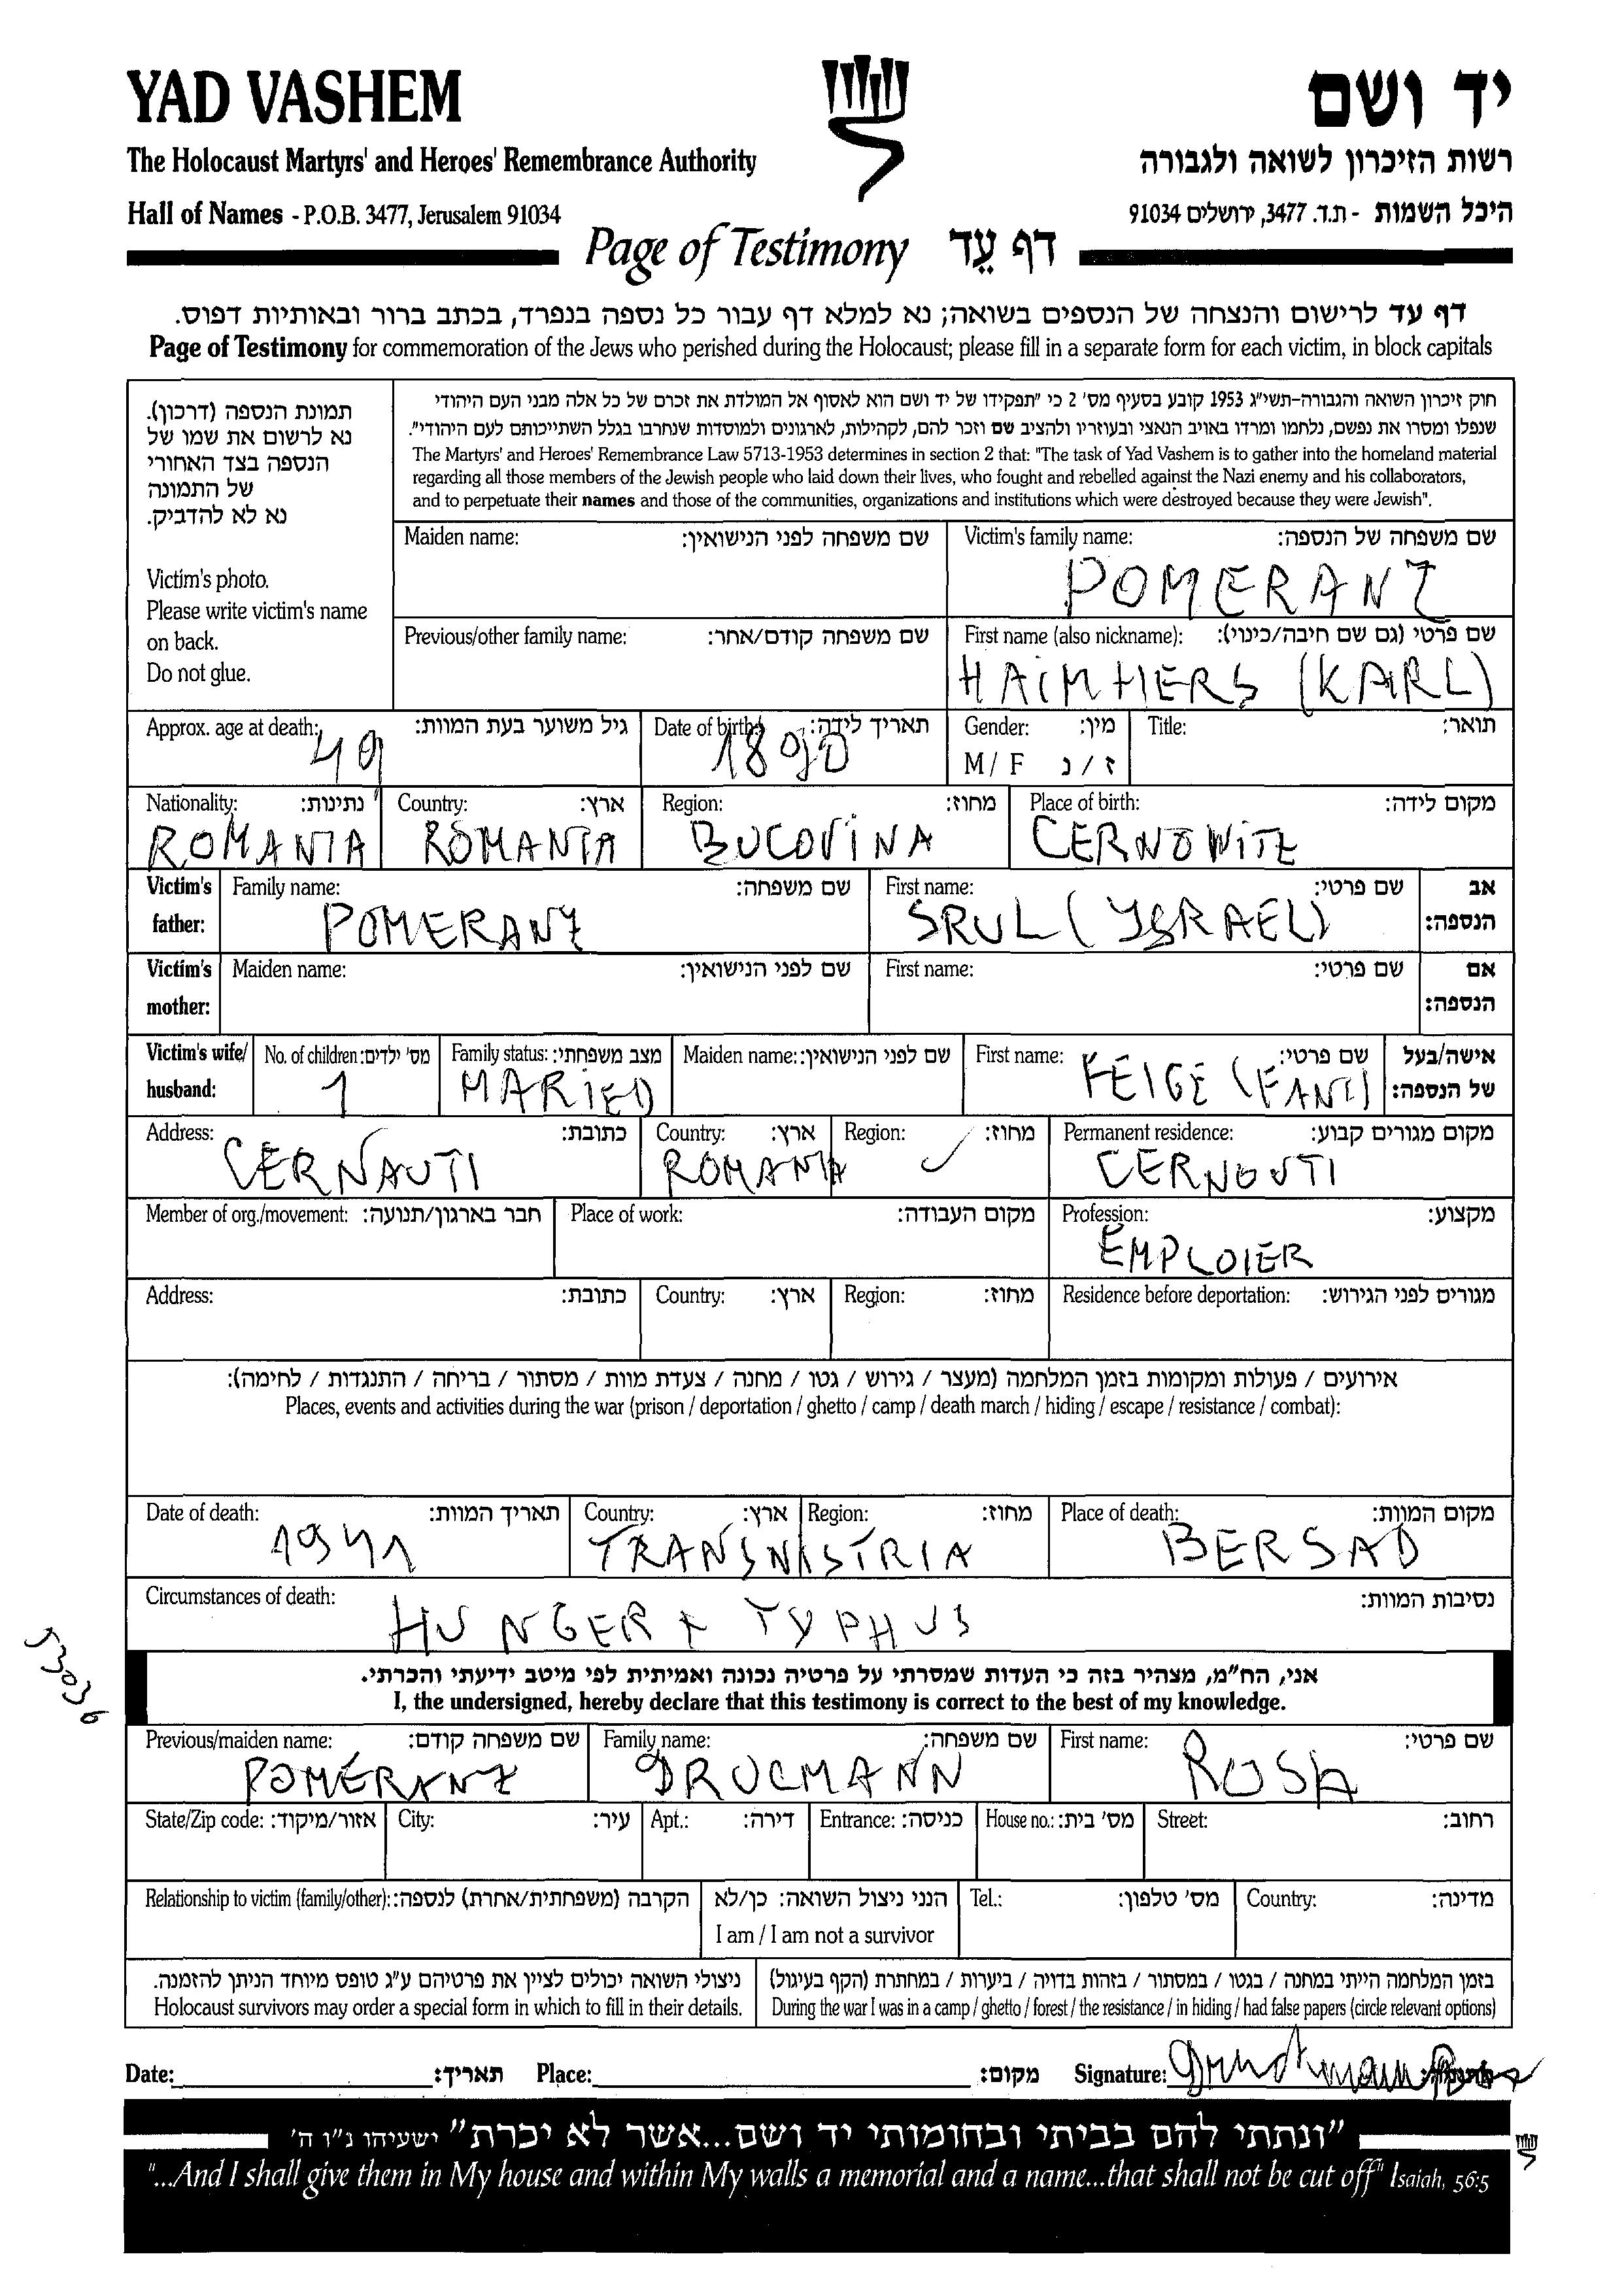 YAD VASHEM
יד ושם
The Holocaust Martyrs' and Heroes' Remembrance Authority
רשות הזיכרון לשואה ולגבורה
Hall of Names - P.O.B. 3477, Jerusalem 91034
היכל השמות - ת.ד. 3477, ירושלים 91034
Page of Testimony דף עֵד
דף עד לרישום והנצחה של הנספים בשואה; נא למלא דף עבור כל נספה בנפרד, בכתב ברור ובאותיות דפוס.
Page of Testimony for commemoration of the Jews who perished during the Holocaust; please fill in a separate form for each victim, in block capitals
תמונת הנספה (דרכון).
נא לרשום את שמו של
הנספה בצד האחורי
של התמונה
נא לא להדביק.
Victim's photo.
Please write victim's name
on back.
Do not glue.
חוק זיכרון השואה והגבורה-תשי"ג 1953 קובע בסעיף מס' 2 כי "תפקידו של יד ושם הוא לאסוף אל המולדת את זכרם של כל אלה מבני העם היהודי
שנפלו ומסרו את נפשם, נלחמו ומרדו באויב הנאצי ובעוזריו ולהציב שם וזכר להם, לקהילות, לארגונים ולמוסדות שנחרבו בגלל השתייכותם לעם היהודי".
The Martyrs' and Heroes' Remembrance Law 5713-1953 determines in section 2 that: "The task of Yad Vashem is to gather into the homeland material
regarding all those members of the Jewish people who laid down their lives, who fought and rebelled against the Nazi enemy and his collaborators,
and to perpetuate their names and those of the communities, organizations and institutions which were destroyed because they were Jewish".
Maiden name: שם משפחה לפני הנישואין:
Victim's family name: שם משפחה של הנספה:
POMERANZ
Previous/other family name: שם משפחה קודם/אחר:
First name (also nickname): שם פרטי (גם שם חיבה/כינוי):
HAIM HERS (KARL)
Approx. age at death: גיל משוער בעת המוות:
49
Date of birth: תאריך לידה:
1890
Gender: מין:
M / F ז / נ
Title: תואר:
Nationality: נתינות:
ROMANIA
Country: ארץ:
ROMANIA
Region: מחוז:
BUCOVINA
Place of birth: מקום לידה:
CERNOWITZ
Victim's father:
Family name: שם משפחה:
POMERANZ
First name: שם פרטי:
SRUL (YSRAEL)
אב הנספה:
Victim's mother:
Maiden name: שם לפני הנישואין:
First name: שם פרטי:
אם הנספה:
Victim's wife/ husband:
No. of children: מס' ילדים:
1
Family status: מצב משפחתי:
MARIED
Maiden name: שם לפני הנישואין:
First name: שם פרטי:
FEIGE (FANI)
אישה/בעל של הנספה:
Address: כתובת:
CERNAUTI
Country: ארץ:
ROMANIA
Region: מחוז:
Permanent residence: מקום מגורים קבוע:
CERNOUTI
Member of org./movement: חבר בארגון/תנועה:
Place of work: מקום העבודה:
Profession: מקצוע:
EMPLOIER
Address: כתובת:
Country: ארץ:
Region: מחוז:
Residence before deportation: מגורים לפני הגירוש:
אירועים / פעולות ומקומות בזמן המלחמה (מעצר / גירוש / גטו / מחנה / צעדת מוות / מסתור / בריחה / התנגדות / לחימה):
Places, events and activities during the war (prison / deportation / ghetto / camp / death march / hiding / escape / resistance / combat):
Date of death: תאריך המוות:
1941
Country: ארץ: Region: מחוז:
TRANSNISTRIA
Place of death: מקום המוות:
BERSAD
Circumstances of death: נסיבות המוות:
HUNGER + TYPHUS
53036
אני, הח"מ, מצהיר בזה כי העדות שמסרתי על פרטיה נכונה ואמיתית לפי מיטב ידיעתי והכרתי.
I, the undersigned, hereby declare that this testimony is correct to the best of my knowledge.
Previous/maiden name: שם משפחה קודם:
POMERANZ
Family name: שם משפחה:
DRUCMANN
First name: שם פרטי:
ROSA
State/Zip code: אזור/מיקוד: City: עיר: Apt.: דירה: Entrance: כניסה: House no.: מס' בית: Street: רחוב:
Relationship to victim (family/other): הקרבה (משפחתית/אחרת) לנספה:
הנני ניצול השואה: כן/לא
I am / I am not a survivor
Tel.: מס' טלפון:
Country: מדינה:
ניצולי השואה יכולים לציין את פרטיהם ע"ג טופס מיוחד הניתן להזמנה.
Holocaust survivors may order a special form in which to fill in their details.
בזמן המלחמה הייתי במחנה / בגטו / במסתור / בזהות בדויה / ביערות / במחתרת (הקף בעיגול)
During the war I was in a camp / ghetto / forest / the resistance / in hiding / had false papers (circle relevant options)
Date: תאריך: Place: מקום: Signature:
"ונתתי להם בביתי ובחומותי יד ושם...אשר לא יכרת" ישעיהו נ"ו ה'
"...And I shall give them in My house and within My walls a memorial and a name...that shall not be cut off" Isaiah, 56:5